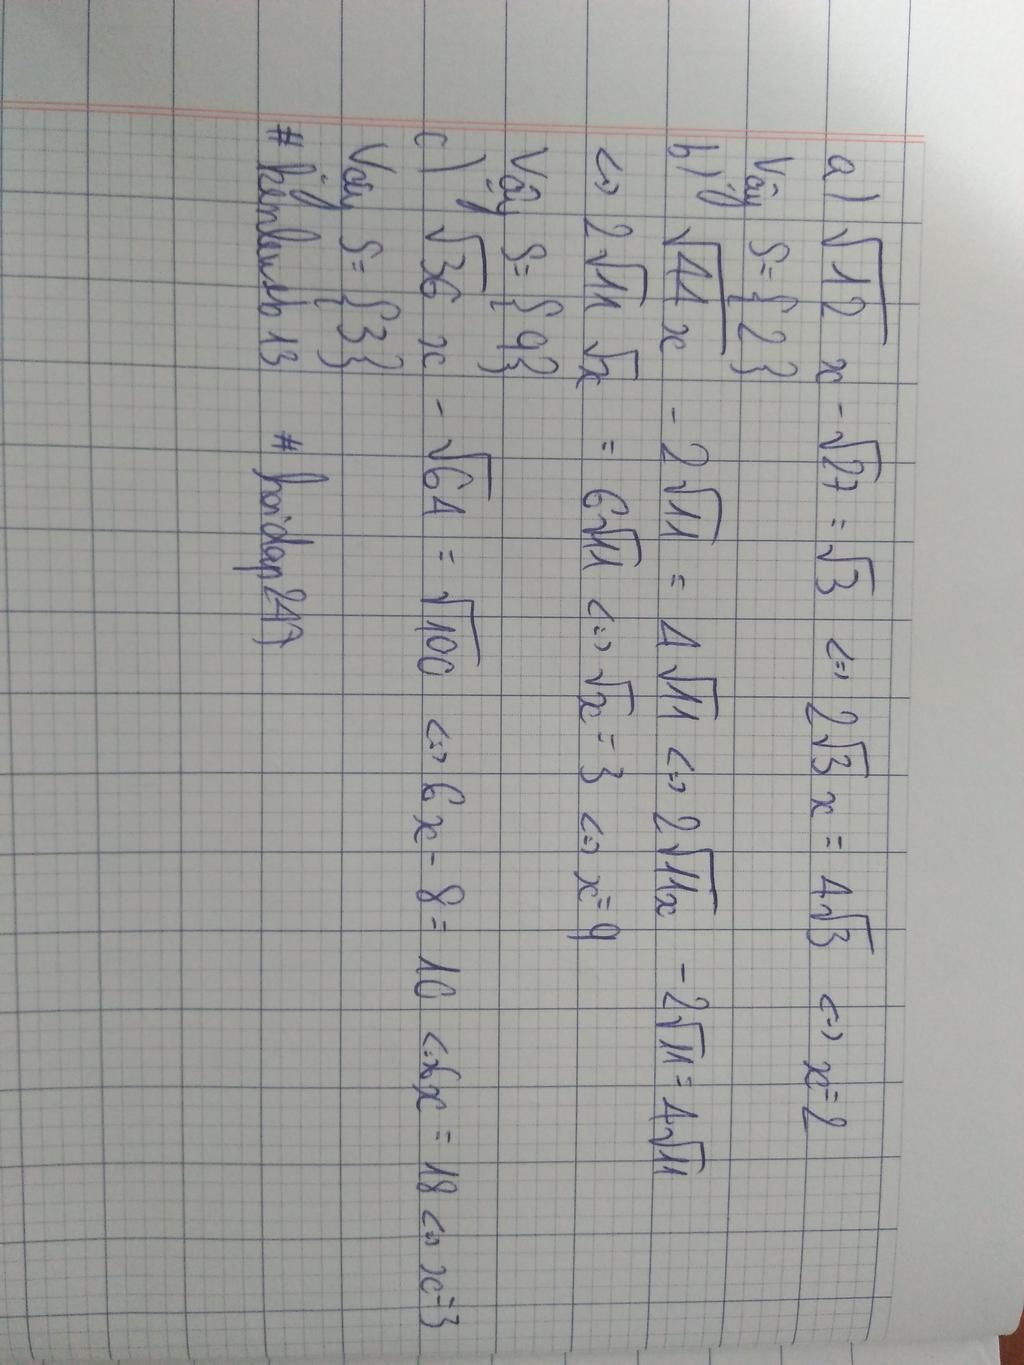 a) √12 x - √27 = √3 <=> 2√3 x = 4√3 <=> x = 2
Vậy S = {2}
b) √44x - 2√11 = 4√11 <=> 2√11x - 2√11 = 4√11
<=> 2√11 √x = 6√11 <=> √x = 3 <=> x = 9
Vậy S = {9}
c) √36 x - √64 = √100 <=> 6x - 8 = 10 <=> 6x = 18 <=> x = 3
Vậy S = {3}
# # hoidap247